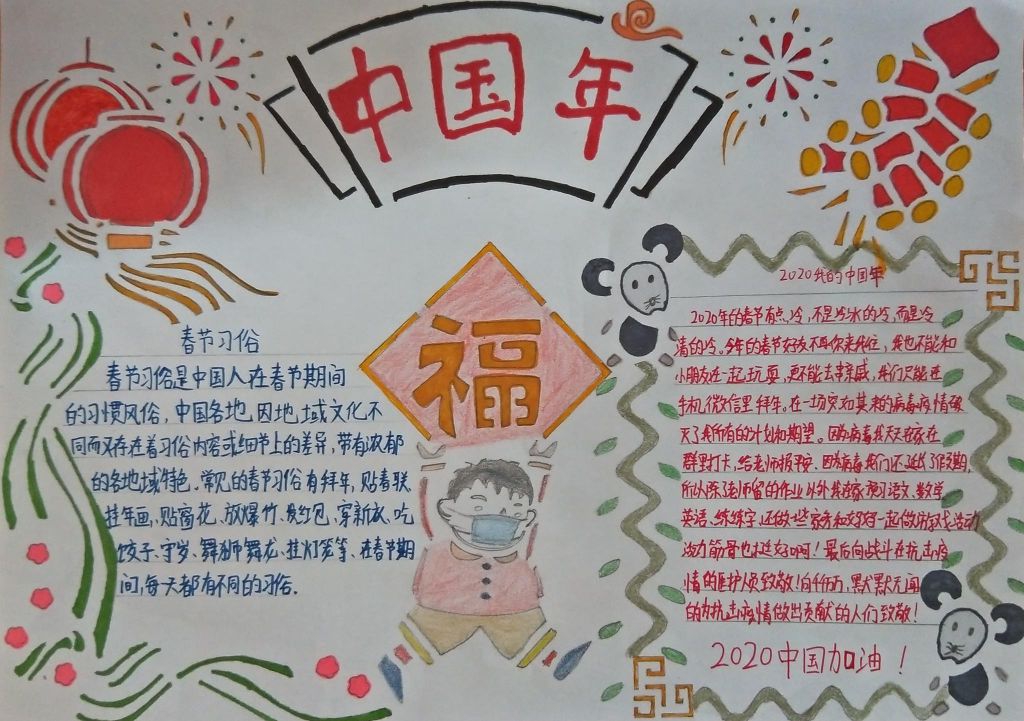 中国年
福
春节习俗
春节习俗是中国人在春节期间
的习惯风俗，中国各地，因地域文化不
同而又存在着习俗内容或细节上的差异，带有浓郁
的各地域特色。常见的春节习俗有拜年，贴春联
挂年画，贴窗花、放爆竹、发红包、穿新衣、吃
饺子、守岁、舞狮舞龙、挂灯笼等、在春节期
间，每天都有不同的习俗.
2020我的中国年
2020年的春节有点冷，不是冷水的冷，而是冷
清的冷。今年的春节好友不再你来我往，我也不能和
小朋友在一起玩耍，更不能去串亲戚，我们只能在
手机微信里拜年。在一场突如其来的病毒病情破
灭了我所有的计划和期望。因为病毒我天天在家在
群里打卡，给老师报平安。因为病毒我们还延长了假期，
所以除了老师留的作业以外我在家预习语文、数学
英语、练练字，还做一些家务和妈妈一起做游戏活动
活力筋骨也不过如啊！最后向战斗在抗击疫
情的医护人员致敬！向千千万万，默默无闻
的为抗击疫情做出贡献的人们致敬！
2020中国加油！